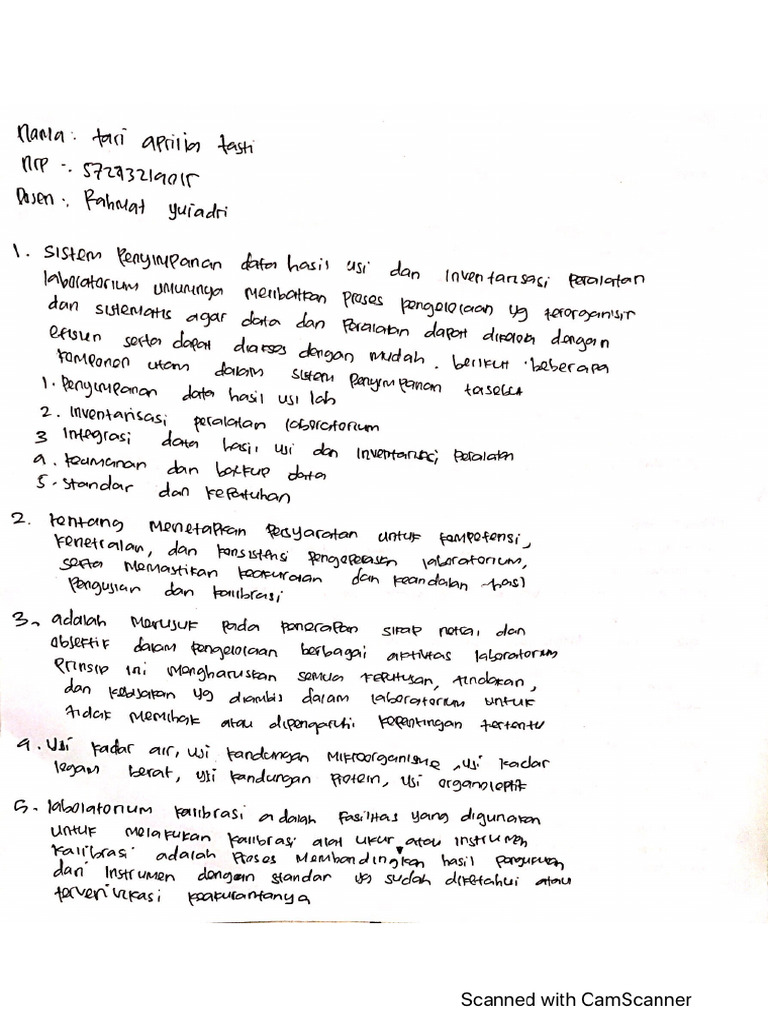 Nama : tari aprilia tasti
Nrp : 57273219015
Dosen : Rahmat yuiadri
1. Sistem Penyimpanan data hasil uji dan Inventarisasi peralatan
laboratorium umumnya melibatkan Proses pengelolaan yg terorganisir
dan sistematis agar data dan Peralatan dapat dikelola dengan
efisien serta dapat diakses dengan mudah. berikut beberapa
komponen utam dalam sistem penyimpanan tasebut
1. Penyimpanan data hasil uji lab
2. Inventarisasi peralatan laboratorium
3 Integrasi data hasil uji dan Inventarisasi Peralatan
4. keamanan dan backup data
5. standar dan kepatuhan
2. tentang menetapkan Persyaratan untuk kompetensi,
kenetralan, dan konsistensi pengoperasian laboratorium,
serta Memastikan keakuratan dan keandalan hasil
Pengujian dan kalibrasi
3. adalah Merujuk pada penerapan sikap netral dan
objektif dalam pengelolaan berbagai aktivitas laboratorium
Prinsip ini Mengharuskan semua keputusan, tindakan,
dan kebijakan yg diambil dalam laboratorium untuk
tidak memihak atau dipengaruhi kepentingan tertentu
4. Uji kadar air, uji kandungan Mikroorganisme, uji kadar
logam berat, uji kandungan Protein, uji organoleptik
5. labolatorium kalibrasi adalah Fasilitas yang digunakan
untuk melakukan kalibrasi alat ukur atau instrumen
kalibrasi adalah Proses Membandingkan hasil pengukuran
dari Instrumen dengan standar yg sudah diketahui atau
terverivikasi keakuratanya
Scanned with CamScanner